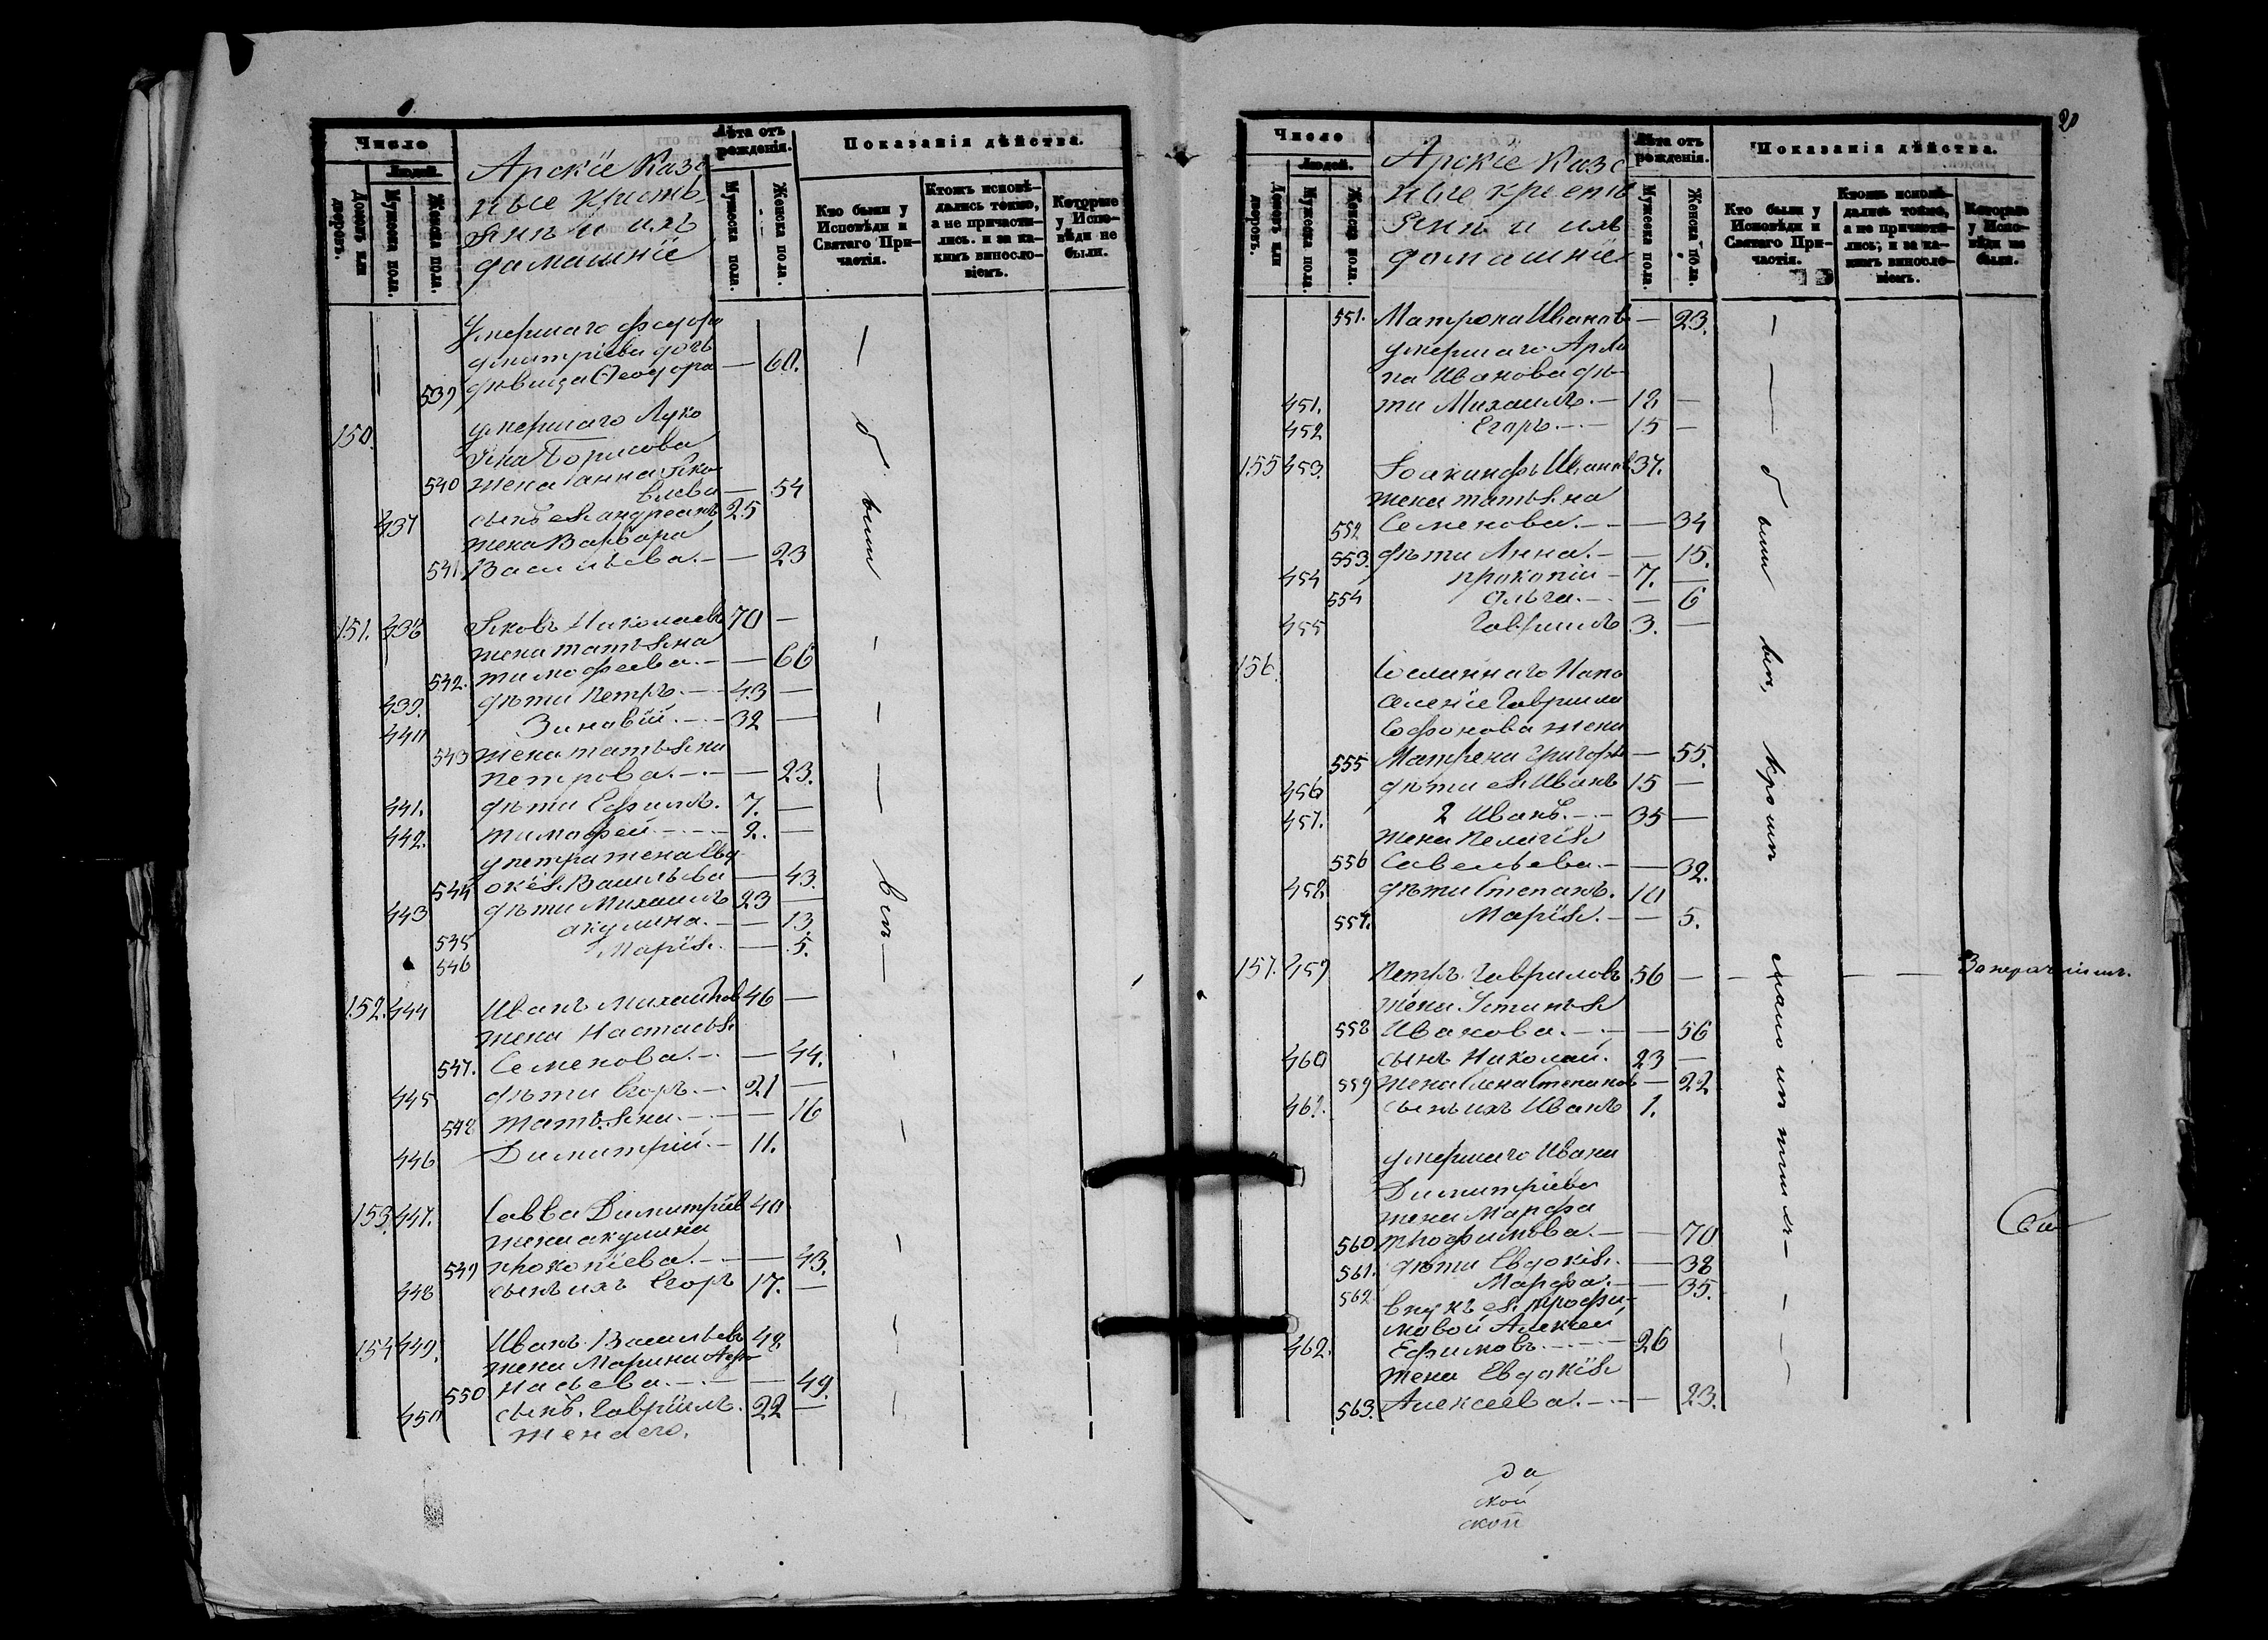 Число
Людей.
Домовъ или дворовъ.
Мужеска пола.
Женска пола.
Арскіе Казе
ные Кресть
янъ и ихъ
домашніе
Лѣта отъ рожденія.
Мужеска пола.
Женска пола.
Показанія дѣйства.
Кто были у Исповѣди и Святаго При-частія.
Ктожъ исповѣ-дались токмо, а не причасти-лись. и за ка-кимъ винословіемъ.
Которые у Испо-вѣди не были.
Умершаго Федора
Дмитріева дочь
539 дѣвица Ѳеодора — 60.
150. умершаго Луко
яна Борисова
540 жена Анна Яко
влева — 54
437 сынъ ея Андреанъ 25
жена Варвара
541. Васильева. — — 23
были
151. 438 Яковъ Николаевъ 70 —
жена Татьяна
542. Тимофеева. — — 66
439. дѣти Петръ. — 43 —
440 Зиновій. — 32 —
543 жена Татьяна
Петрова. — — 23.
441. дѣти Ефимъ. 7. —
442. Тимофей — 2. —
у Петра жена Евд
544 окія Васильева — 43.
443 дѣти Михаилъ 23 —
545 Акулина. — — 13.
546 Марія. — 5.
всѣ
152. 444 Иванъ Михайлов 46 —
жена Настасья
547. Семенова. — — 44.
445 дѣти Егоръ. — 21 —
548 Татьяна. — — 16
446 Димитрій. — 11.
153. 447. Савва Димитріев 40
жена Акулина
549 Прокопіева. — — 43.
448 сынъ ихъ Егоръ 17. —
154 449. Иванъ Васильевъ 48
жена Марина Афо
550 насьева. — — 49.
450 сынъ. Гавріилъ. 22 —
жена его.
20
Число
Людей.
Домовъ или дворовъ.
Мужеска пола.
Женска пола.
Арскіе Казе
ные кресть
янъ и ихъ
домашніе
Лѣта отъ рожденія.
Мужеска пола.
Женска пола.
Показанія дѣйства.
Кто были у Исповѣди и Святаго При-частія.
Ктожъ исповѣ-дались токмо, а не причасти-лись; и за ка-кимъ винословіемъ.
Которые у Испо-вѣди не были.
551. Матрона Иванов — 23.
умершаго Архи
па Иванова дѣ-
451. ти Михаилъ. — 18 —
452 Егоръ. — 15 —
155 453. Іоакинфъ Иванов 37.
жена Татьяна
552 Семенова. — — 34
553. дѣти Анна. — — 15.
454 Прокопій — 7. —
554 Ольга. — — 6
455 Гавріилъ 3. —
были всѣ, кромѣ
156. Сосланнаго На по
селеніе Гавриила
Софонова жена
555 Матрена Григорь — 55.
456 дѣти ея Иванъ 15 —
457. 2 Иванъ. — 35 —
жена Пелагія
556 Савельева. — — 32.
458. дѣти Степанъ. 10
557. Марія. — — 5.
157. 459 Петръ Гавриловъ 56 — — — —
жена Устинья
558 Иванова. — — 56
460 сынъ Николай. 23 —
559 жена Елена Степанов — 22
461. сынъ ихъ Иванъ 1.
умершаго Ивана
Димитріева
жена Марфа
560 Трофимова. — — 70
561. дѣти Евдокія. — 38
562 Марфа. — — 35.
внукъ ея Трофи-
мовой Алексей
462. Ефимовъ. — 26
жена Евдокія
563. Алексеева. — — 23.
да
кой
ской